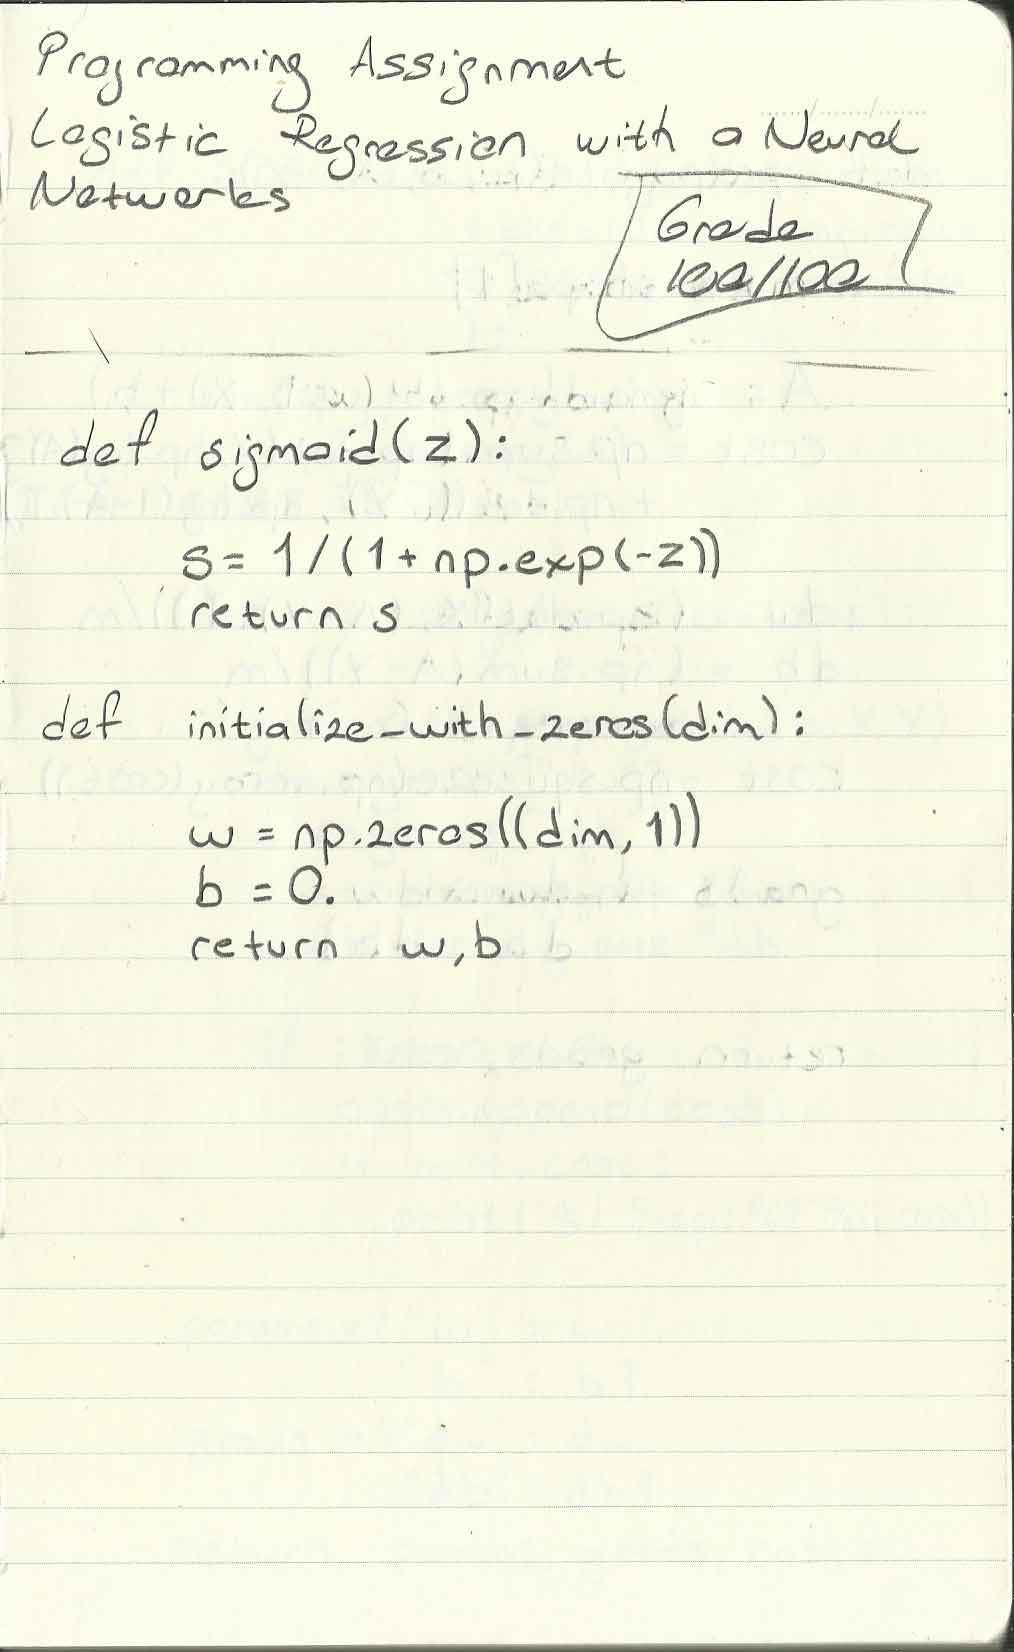 Programming Assignment
Logistic Regression with a Neural
Networks
Grade
100/100
def sigmoid(z):
s = 1/(1+np.exp(-z))
return s
def initialize_with_zeros(dim):
w = np.zeros((dim, 1))
b = 0.
return w,b